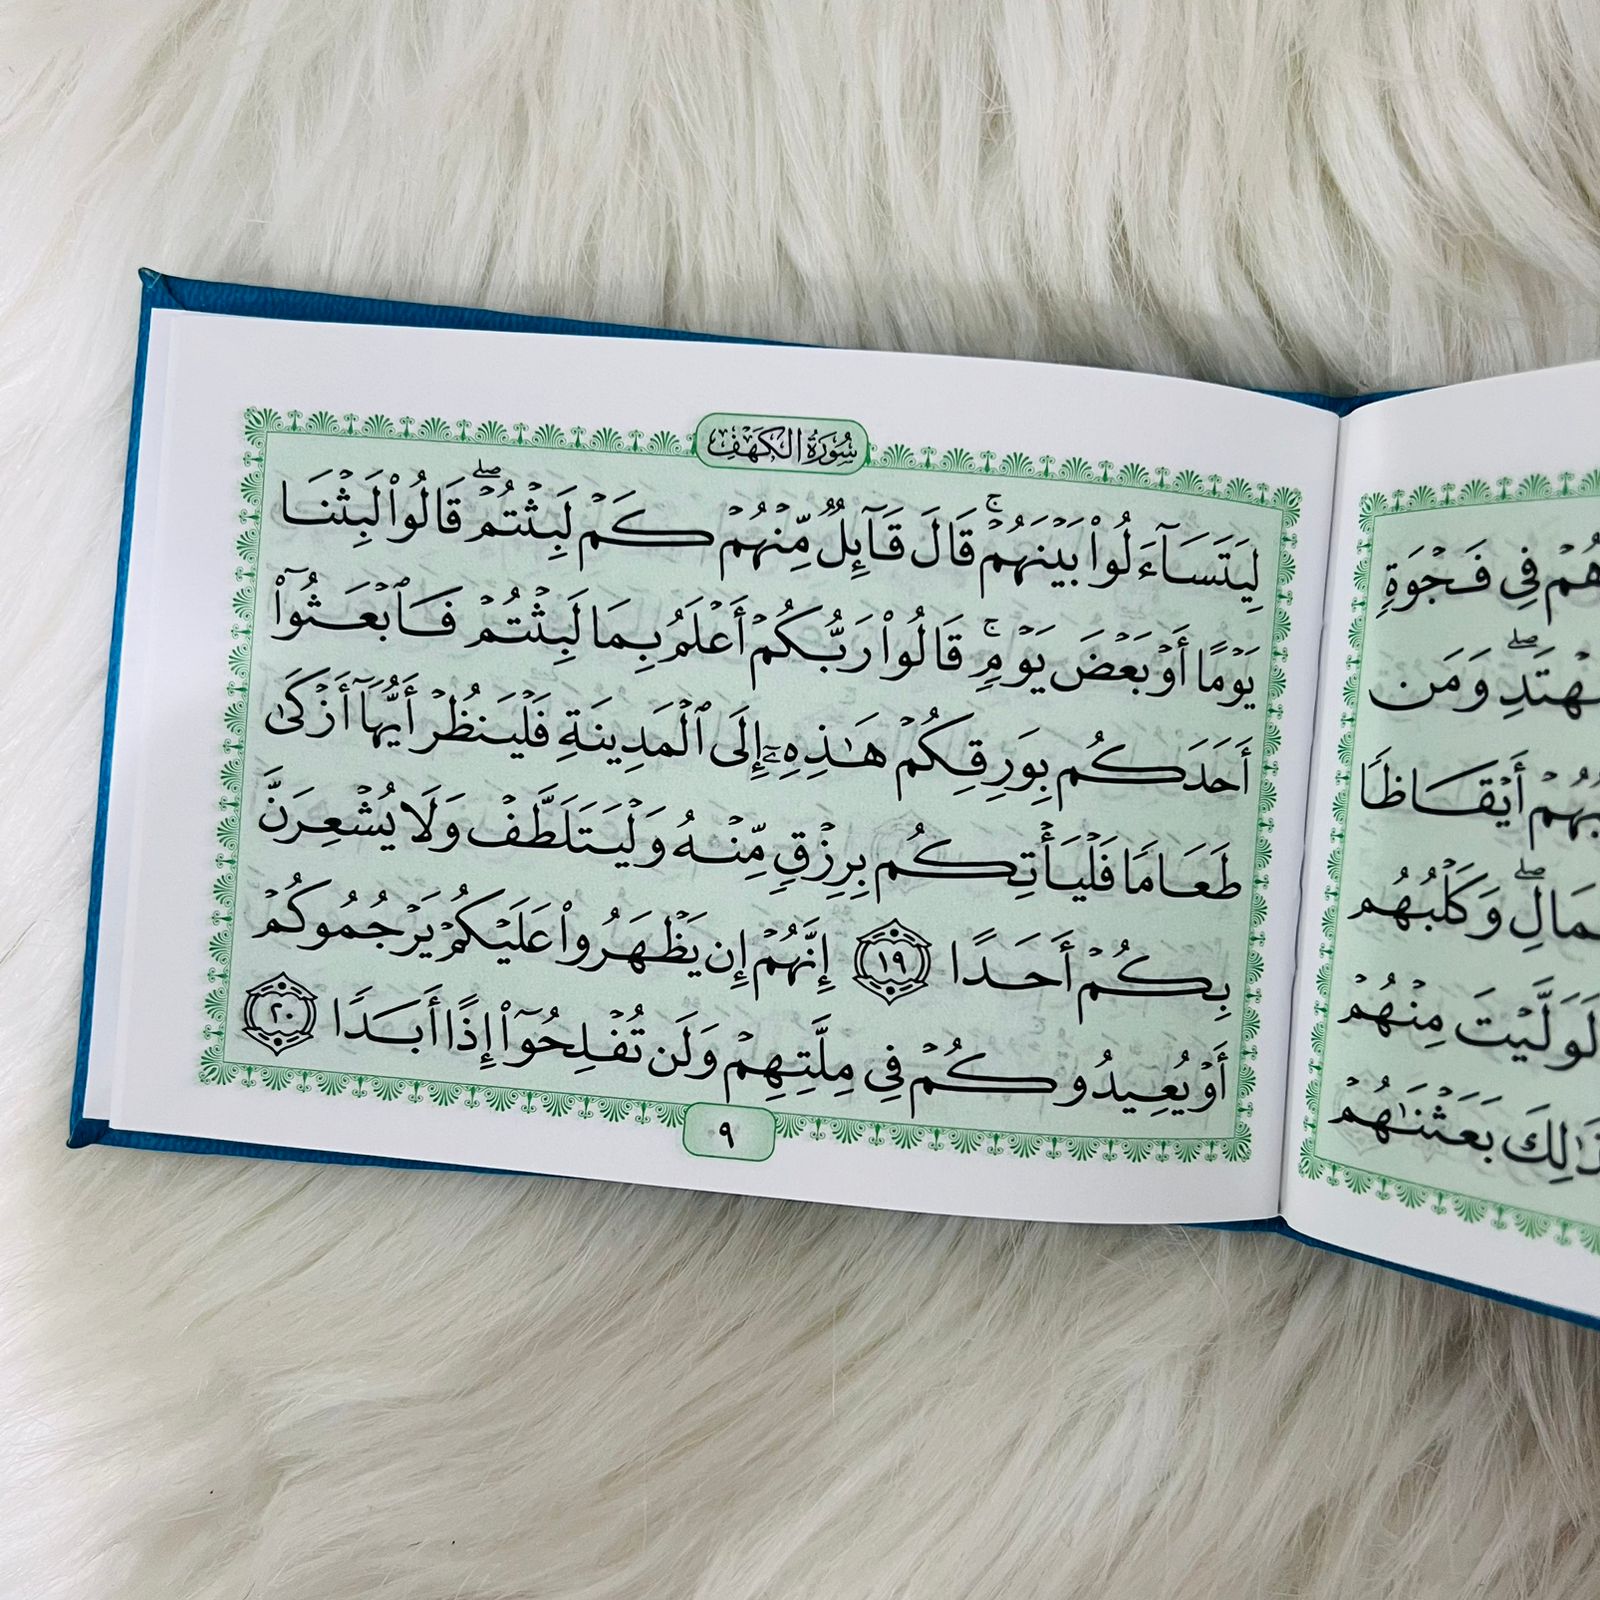 هُمْ فِى فَجْوَةٍ
هْتَدِ ۖ وَمَن
بُهُمْ أَيْقَاظًا
مَالِ ۖ وَكَلْبُهُم
لَوَلَّيْتَ مِنْهُمْ
ذَٰلِكَ بَعَثْنَٰهُمْ
سُورَةُ الكَهْفِ
لِيَتَسَآءَلُوا۟ بَيْنَهُمْ ۚ قَالَ قَآئِلٌ مِّنْهُمْ كَمْ لَبِثْتُمْ ۖ قَالُوا۟ لَبِثْنَا
يَوْمًا أَوْ بَعْضَ يَوْمٍ ۚ قَالُوا۟ رَبُّكُمْ أَعْلَمُ بِمَا لَبِثْتُمْ فَٱبْعَثُوٓا۟
أَحَدَكُم بِوَرِقِكُمْ هَٰذِهِۦٓ إِلَى ٱلْمَدِينَةِ فَلْيَنظُرْ أَيُّهَآ أَزْكَىٰ
طَعَامًا فَلْيَأْتِكُم بِرِزْقٍ مِّنْهُ وَلْيَتَلَطَّفْ وَلَا يُشْعِرَنَّ
بِكُمْ أَحَدًا ١٩ إِنَّهُمْ إِن يَظْهَرُوا۟ عَلَيْكُمْ يَرْجُمُوكُمْ
أَوْ يُعِيدُوكُمْ فِى مِلَّتِهِمْ وَلَن تُفْلِحُوٓا۟ إِذًا أَبَدًا ٢٠
٩